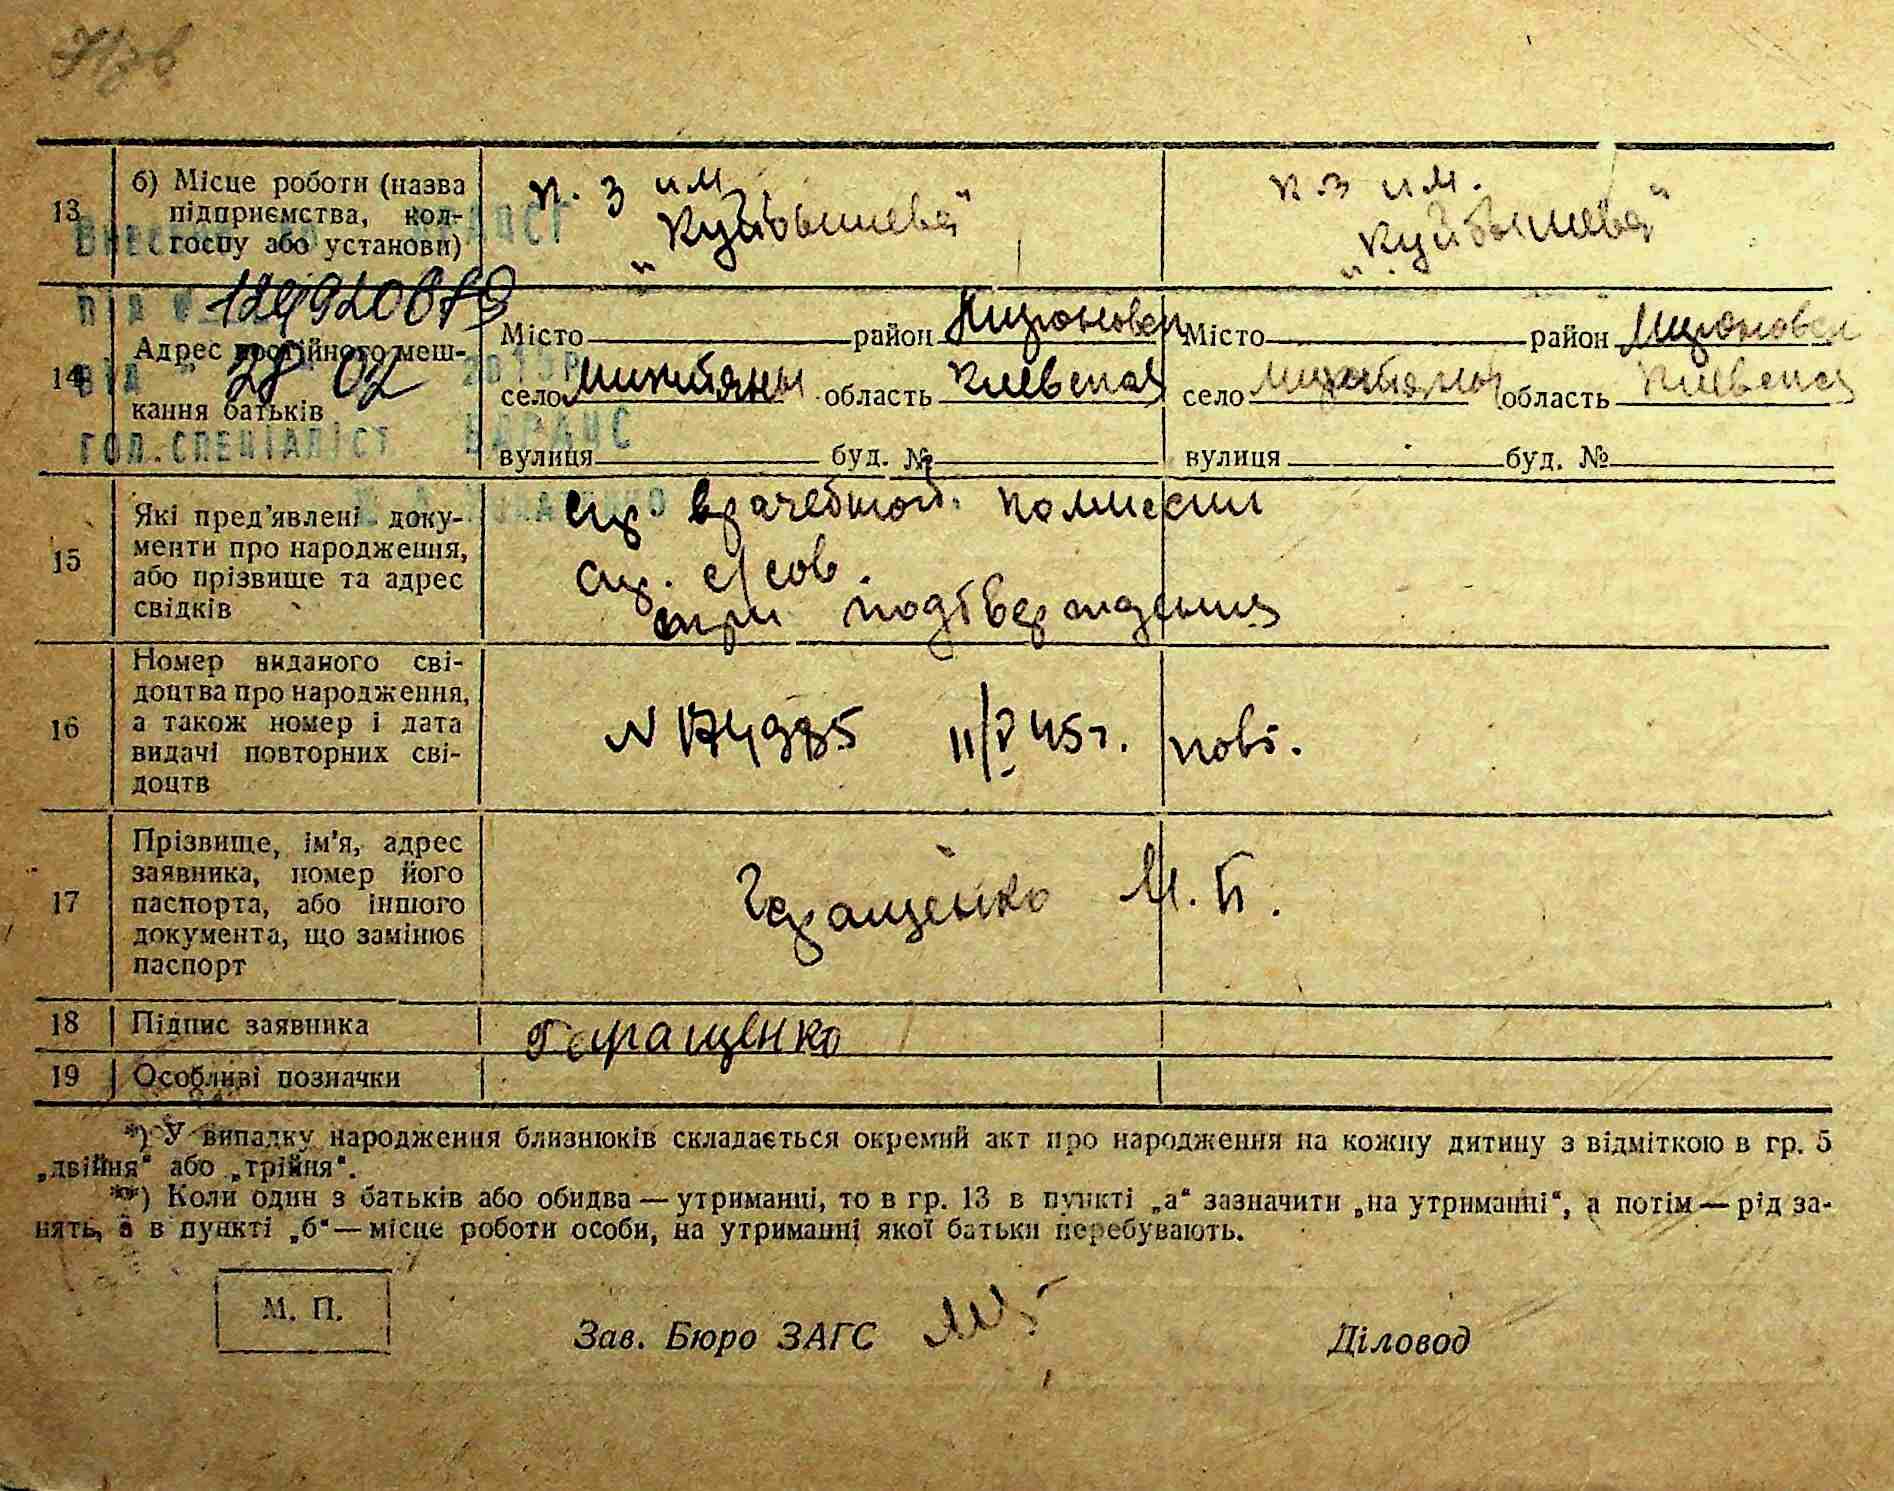 13
б) Місце роботи (назва
підприємства, кол-
госпу або установи)
к. з им.
„Куйбышева"
к. з им.
„Куйбышева"
14
Адрес постійного меш-
кання батьків
Місто район Мироновск
село Микитяны область Киевская
вулиця буд. №
Місто район Мироновск
село Микитяны область Киевская
вулиця буд. №
ГОЛ. СПЕЦІАЛІСТ ВДРАЦС
28 02 2013Р
15
Які пред'явлені доку-
менти про народження,
або прізвище та адрес
свідків
спр. врачебной. комиссии
спр. с/сов.
при подтверждения
16
Номер виданого сві-
доцтва про народження,
а також номер і дата
видачі повторних сві-
доцтв
N 174985 11/V 45г. повт.
17
Прізвище, ім'я, адрес
заявника, номер його
паспорта, або іншого
документа, що замінює
паспорт
Геращенко М. П.
18
Підпис заявника
Геращенко
19
Особливі позначки
*) У випадку народження близнюків складається окремий акт про народження на кожну дитину з відміткою в гр. 5
„двійня" або „трійня".
**) Коли один з батьків або обидва — утриманці, то в гр. 13 в пункті „а" зазначити „на утриманні", а потім — рід за-
нять, а в пункті „б" — місце роботи особи, на утриманні якої батьки перебувають.
М. П.
Зав. Бюро ЗАГС
Діловод